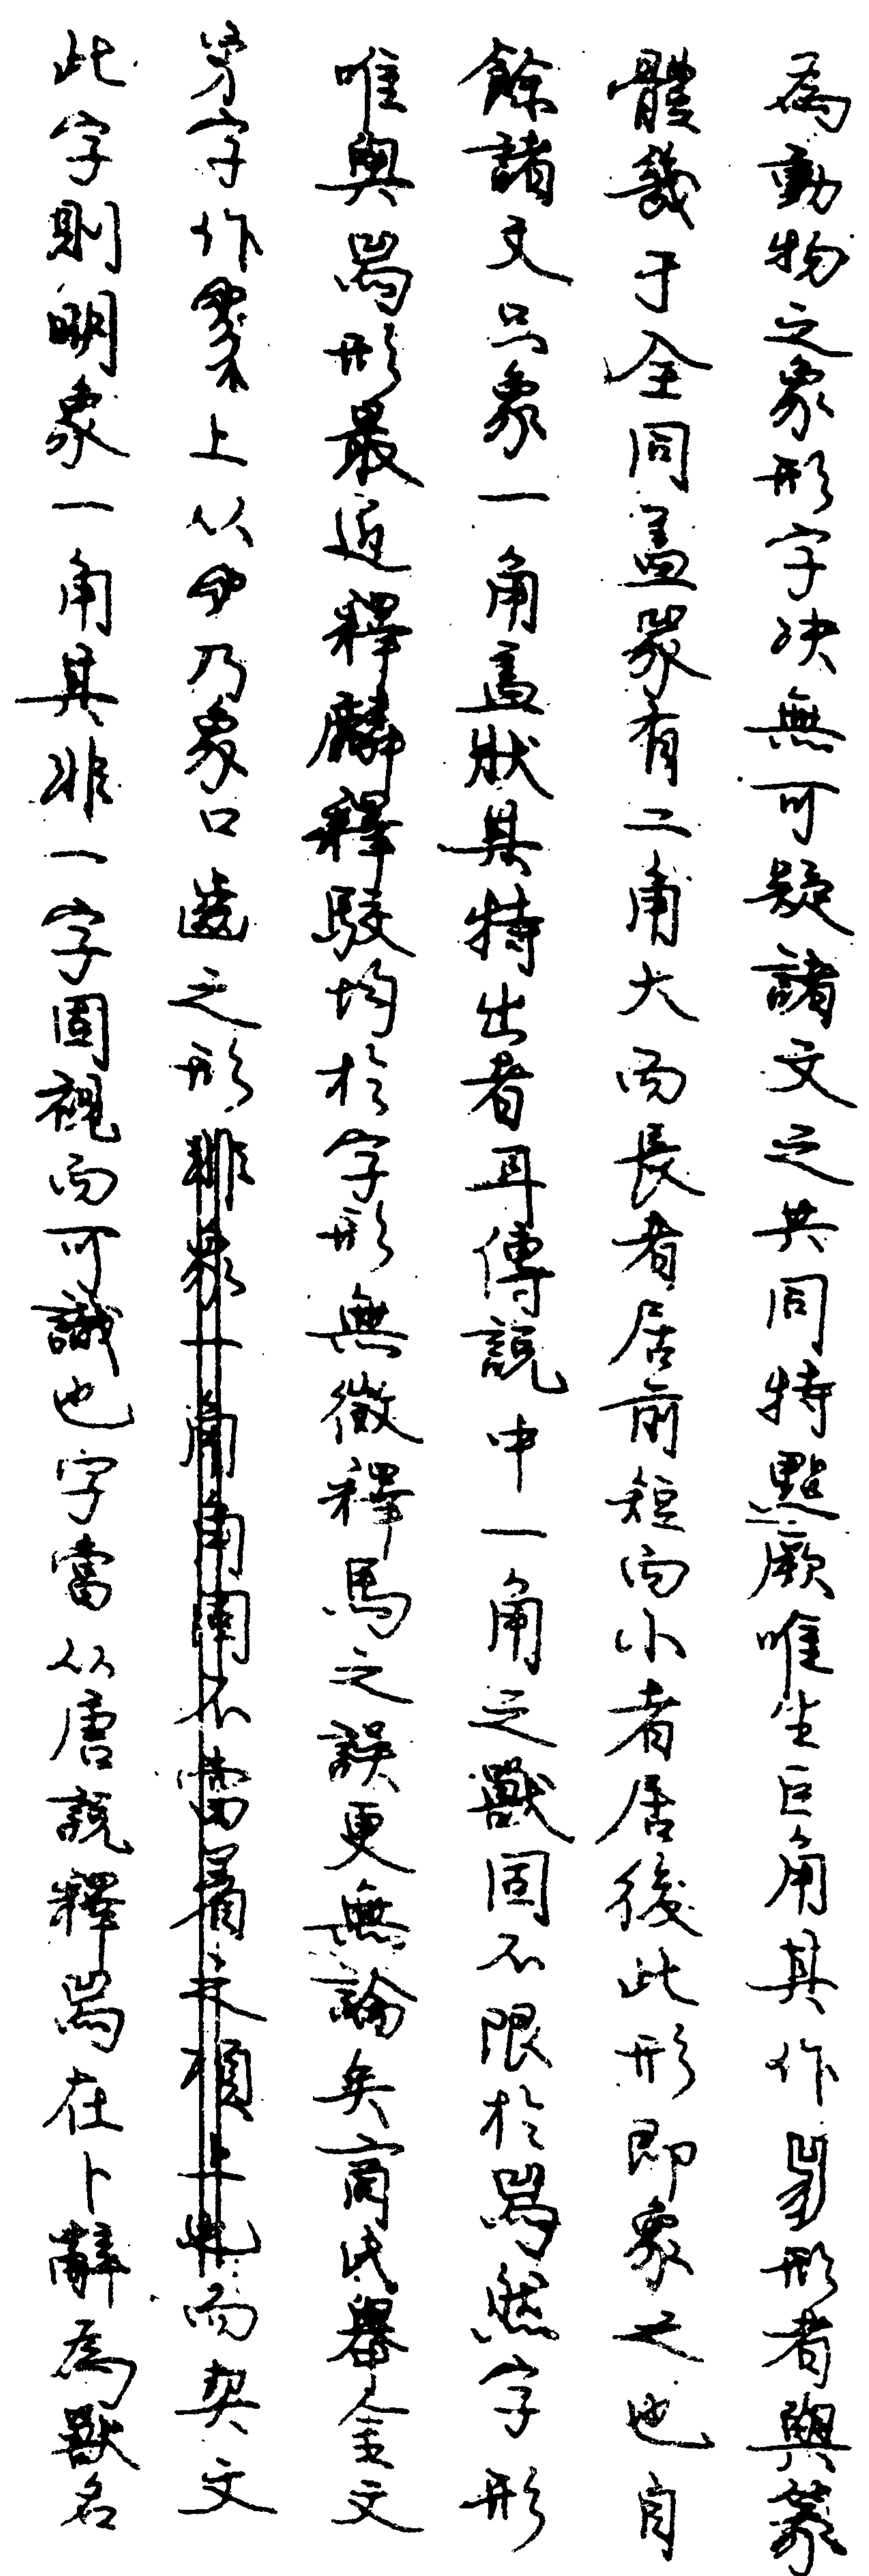 為動物之象形字決無可疑諸文之共同特點厥唯生巨角其作形者與篆
體幾于全同蓋有二角大而長者居前短而小者居後此形即象之也自
餘諸文只象一角蓋狀其特出者耳傳說中一角之獸固不限於𤉡然字形
唯與𤉡形最近釋麟釋駮均於字形無徵釋馬之誤更無論矣商氏舉金文
字作上从乃象口齒之形而契文
此字則明象一角其非一字固視而可識也字當从唐說釋𤉡在卜辭為獸名